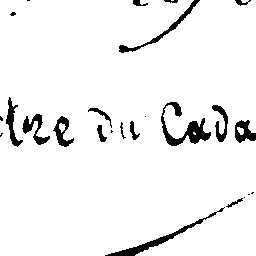 tre du Cada